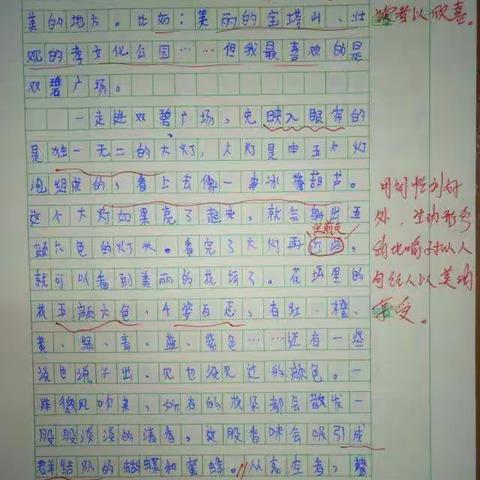 美的地方。比如：美丽的宝塔山、壮
观的孝文化公园……但我最喜欢的是
双碧广场。
一走进双碧广场，先映入眼帘的
是独一无二的大灯，大灯是由五个灯
泡组成的，看上去像一串冰糖葫芦。
这个大灯如果亮了起来，就会射出五
颜六色的灯光。看完了大灯再
就可以看到美丽的花坛了。花坛里的
花五颜六色，千姿百态，有红、橙、
黄、绿、青、蓝、紫色……还有一些
说也说不出、见也没见过的颜色。一
阵微风吹来，所有的花朵都会散发一
股股淡淡的清香。这股香味会吸引成
群结队的蝴蝶和蜜蜂。从高空看，整
读者以欣喜。
用词恰到好
处，生动形象
的比喻
句给人以美的
享受。